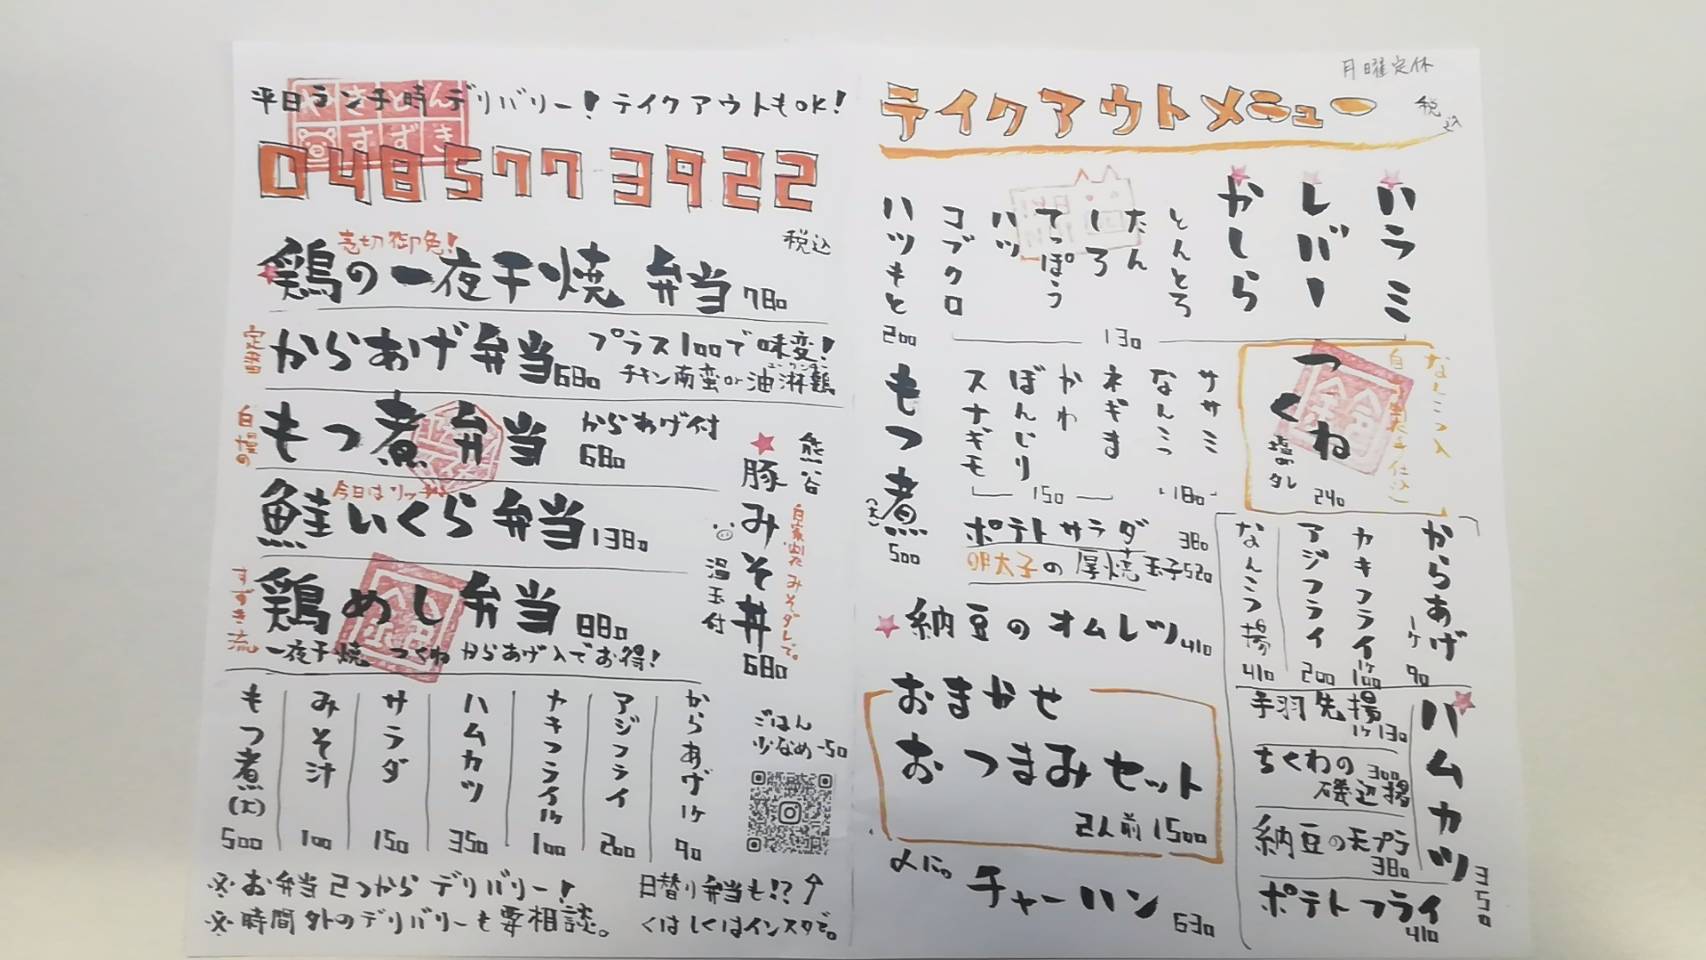 平日ランチ時デリバリー！テイクアウトもOK！
やさとん
すずき
048 577 3922
税込
売切御免！
鶏の一夜干焼 弁当 780
定番
からあげ弁当 680
プラス100で味変！
チキン南蛮or油淋鶏
自慢の
もつ煮弁当
からあげ付
680
今日はリッチに
鮭いくら弁当 1380
すずき流
鶏めし弁当 880
一夜干焼 つくね からあげ入でお得！
熊谷
豚みそ丼 680
自家製みそダレで。
温玉付
からあげ1ケ 90
アジフライ 200
カキフライ1ケ 100
ハムカツ 350
サラダ 150
みそ汁 100
もつ煮(大) 500
ごはん
少なめ-50
※お弁当2つからデリバリー！
※時間外のデリバリーも要相談。
日替り弁当も!?
くはしくはインスタで。
月曜定休
テイクアウトメニュー
税込
ハラミ
しバー
かしら
とんとろ
たん
しろ
てっぽう
ハツ
コブクロ
130
ハツもと
200
なんこつ入
つくね
塩orタレ
240
ササミ
なんこつ
180
ネギま
かわ
ぼんじり
スナギモ
150
もつ煮
(大)
500
ポテトサラダ 380
明太子の厚焼玉子 520
納豆のオムレツ 410
おまかせ
おつまみセット
2人前 1500
〆に。
チャーハン 630
からあげ 1ケ 90
カキフライ 1ケ 100
アジフライ 200
なんこつ揚 410
ハムカツ 350
手羽先揚
1ケ130
ちくわの
磯辺揚 300
納豆の天プラ
380
ポテトフライ
410